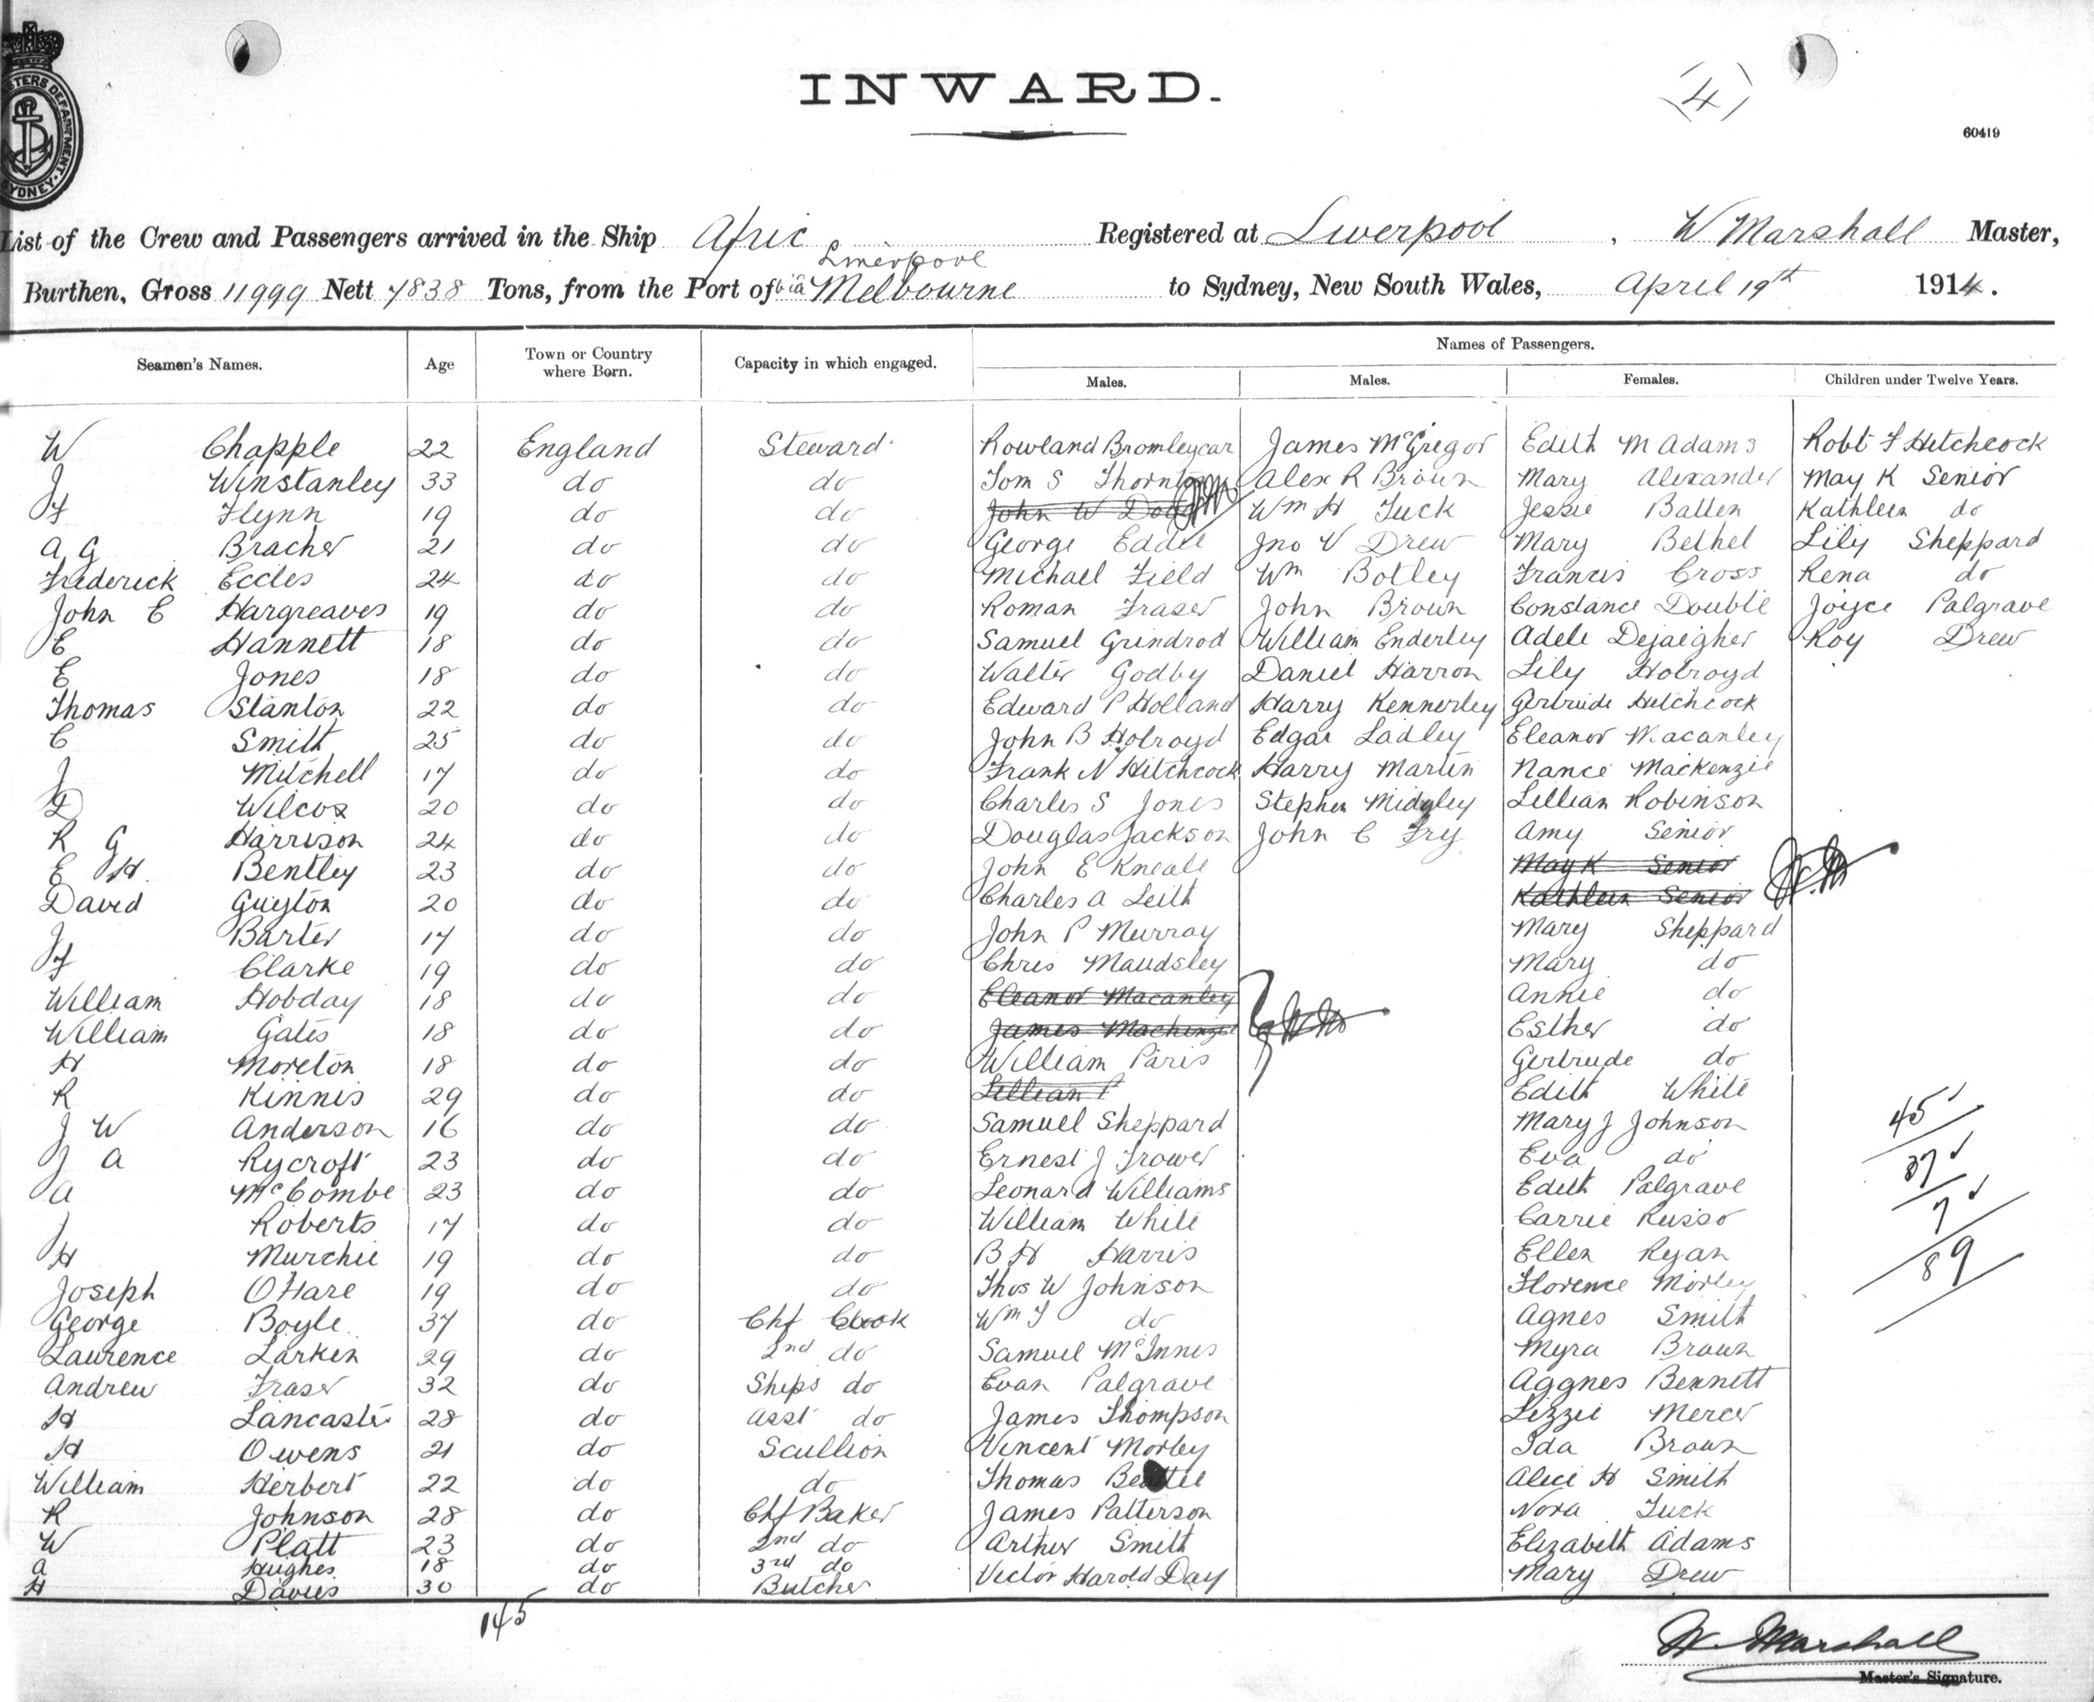 INWARD.
(4)
60419
SYDNEY
List of the Crew and Passengers arrived in the Ship Afric Registered at Liverpool, W Marshall Master,
Liverpool
Burthen, Gross 11999 Nett 7838 Tons, from the Port of via Melbourne to Sydney, New South Wales, April 19th 1914.
Seamen's Names. Age Town or Country where Born. Capacity in which engaged. Names of Passengers.
Males. Males. Females. Children under Twelve Years.
W Chapple 22 England Steward Rowland Bromleycar James McGregor Edith M Adams Robt F Hitchcock
J Winstanley 33 do do Tom S Thornton Alex R Brown Mary Alexander May K Senior
F Flynn 19 do do John W Wm H Tuck Jessie Batten Kathleen do
A G Bracher 21 do do George Eddie Jno V Drew Mary Bethel Lily Sheppard
Frederick Eccles 24 do do Michael Field Wm Botley Francis Cross Rena do
John E Hargreaves 19 do do Roman Fraser John Brown Constance Double Joyce Palgrave
E Hannett 18 do do Samuel Grindrod William Enderley Adele Dejaegher Roy Drew
E Jones 18 do do Walter Godby Daniel Harron Lily Holroyd
Thomas Stanton 22 do do Edward P Holland Harry Kennerley Gertrude Hitchcock
C Smith 25 do do John B Holroyd Edgar Ladley Eleanor Macanley
J Mitchell 17 do do Frank N Hitchcock Harry Martin Nance Mackenzie
D Wilcox 20 do do Charles S Jones Stephen Midgley Lillian Robinson
R G Harrison 24 do do Douglas Jackson John C Fry Amy Senior
E H. Bentley 23 do do John E Kneale May K Senior
David Guyton 20 do do Charles A Leith Kathleen Senior
J Barter 17 do do John P Murray Mary Sheppard
F Clarke 19 do do Chris Maudsley Mary do
William Hobday 18 do do Eleanor Macanley Annie do
William Gates 18 do do James Esther do
H Moreton 18 do do William Paris Gertrude do
R Kinnis 29 do do Lillian Edith White
J W Anderson 16 do do Samuel Sheppard Mary J Johnson 45
J A Rycroft 23 do do Ernest J Trower Eva do 37
A McCombe 23 do do Leonard Williams Edith Palgrave
J Roberts 17 do do William White Carrie Russo 7
H Murchie 19 do do B H Harris Ellen Ryan 89
Joseph OHare 19 do do Thos W Johnson Florence Morley
George Boyle 37 do Chf Cook Wm do Agnes Smith
Laurence Larken 29 do 2nd do Samuel McInnes Myra Brown
Andrew Fraser 32 do Ships do Evan Palgrave Aggnes Bennett
H Lancaster 28 do Asst do James Thompson Lizzie Mercer
H Owens 21 do Scullion Vincent Morley Ida Brown
William Herbert 22 do do Thomas Beattie Alice H Smith
R Johnson 28 do Chf Baker James Patterson Nora Tuck
W Platt 23 do 2nd do Arthur Smith Elizabeth Adams
A Hughes 18 do 3rd do Victor Harold Day Mary Drew
H Davies 30 do Butcher
145
W. Marshall
Master's Signature.